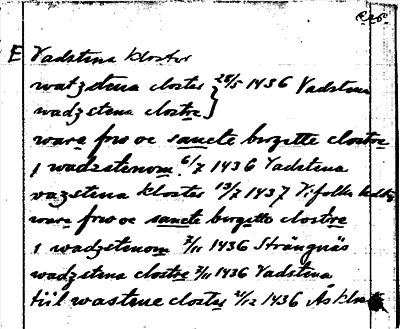 E Vadstena kloster
watzstena closter 28/5 1436 Vadstena
wadzstena clostre
ware frw oc sancte byrgitte clostre
j wadzstenom 6/7 1436 Vadstena
vazstena kloster 13/7 1437 Vifolka
ware frw oc sancte byrgitte clostre
j wadzstenom 7/11 1436 Strängnäs
wadzstena clostre 7/11 1436 Vadstena
tiil wastene closter 2/12 1436 Ås kloster